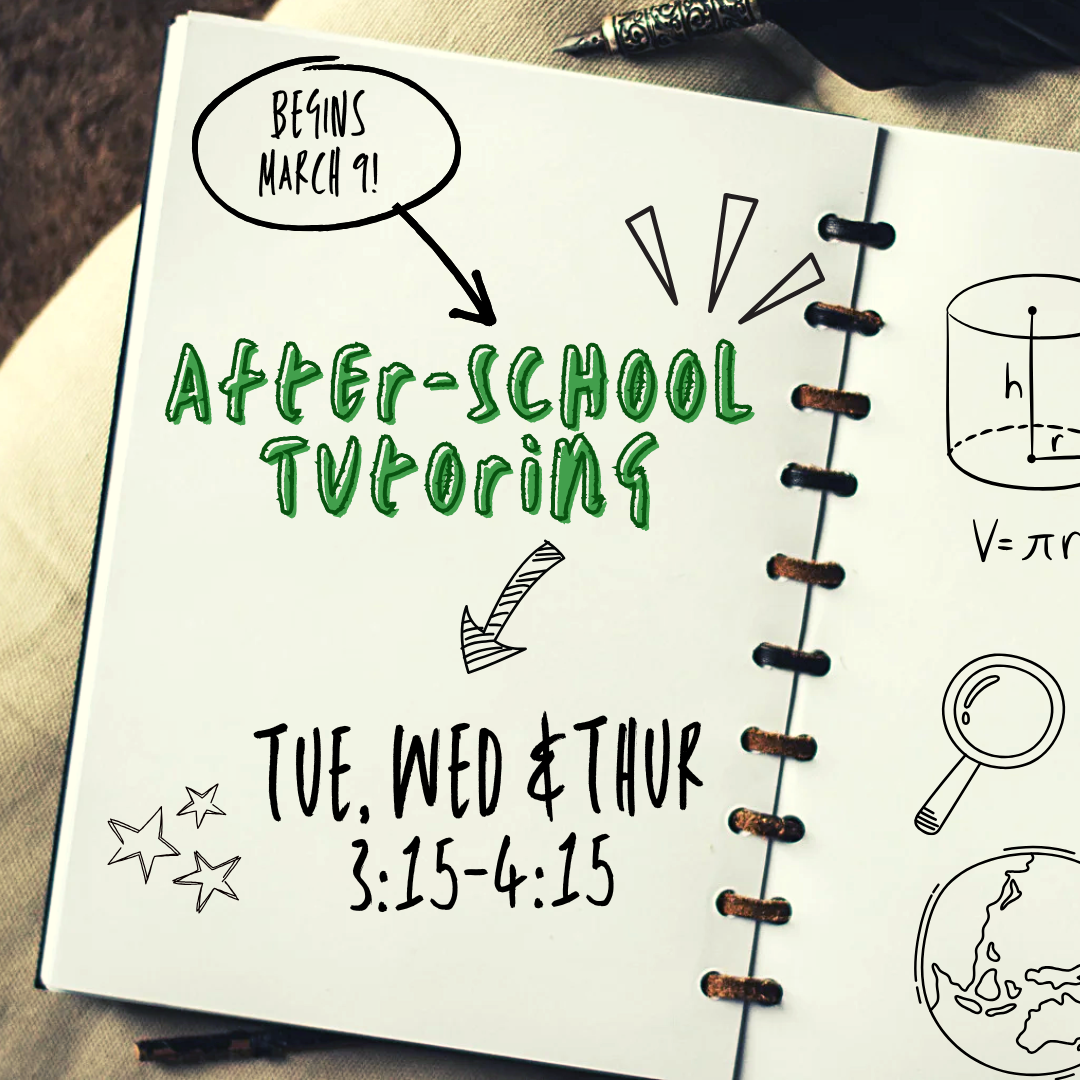 BEGINS
MARCH 9!
AftEr-SCHOOL
TUtOriNG
TUE, WED & THUR
3:15-4:15
h
r
V= πr